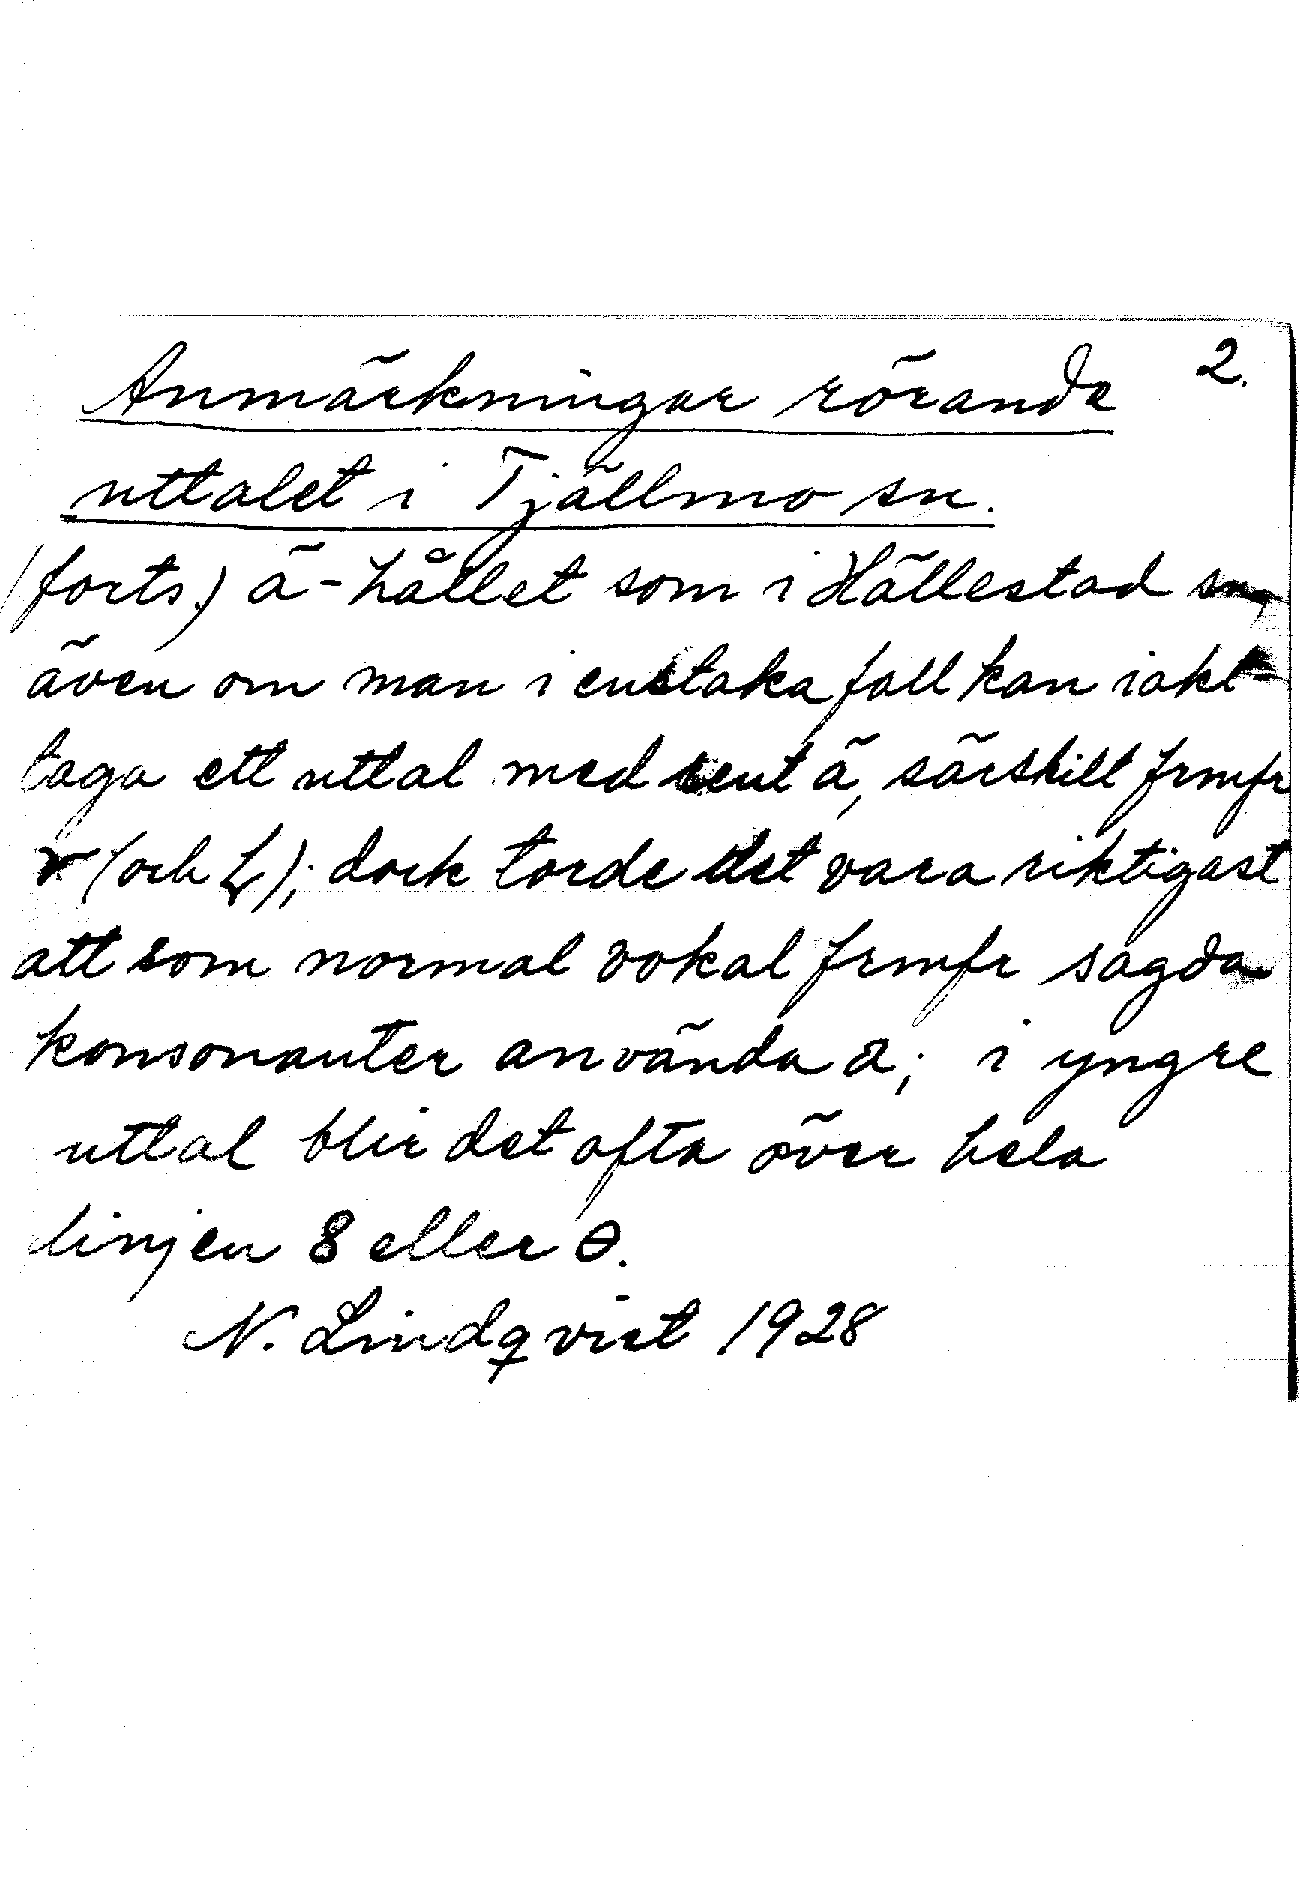 2.
Anmärkningar rörande
uttalet i Tjällmo sn.
(forts.) ä-hållet som i Hällestad sn,
även om man i enstaka fall kan iakt-
taga ett uttal med rent ä, särskilt framför
r (och L); dock torde det vara riktigast
att som normal vokal frmfr sagda
konsonanter använda a; i yngre
uttal blir det ofta över hela
linjen 8 eller ə.
N. Lindqvist 1928